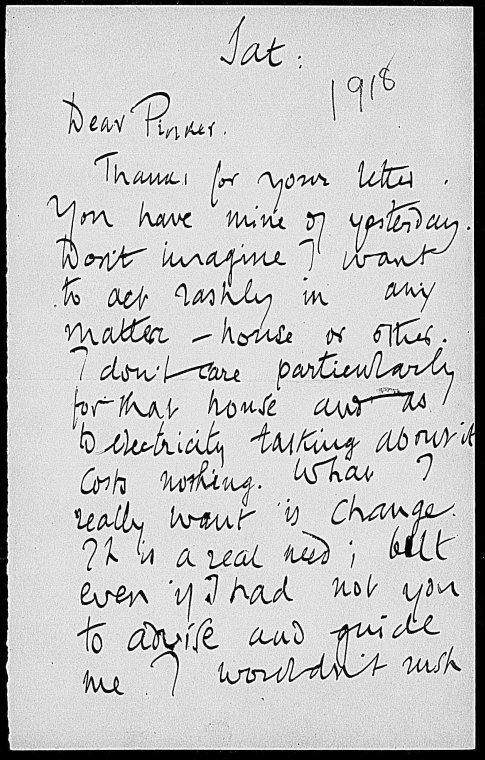 Sat:
1918
Dear Pinker.
Thanks for your letter.
You have mine of yesterday.
Don't imagine I want
to act rashly in any
matter - house or other.
I don't care particularly
for that house and as
to electricity talking about it
costs nothing. What I
really want is change.
It is a real need; but
even if I had not you
to advise and guide
me I wouldn't rush